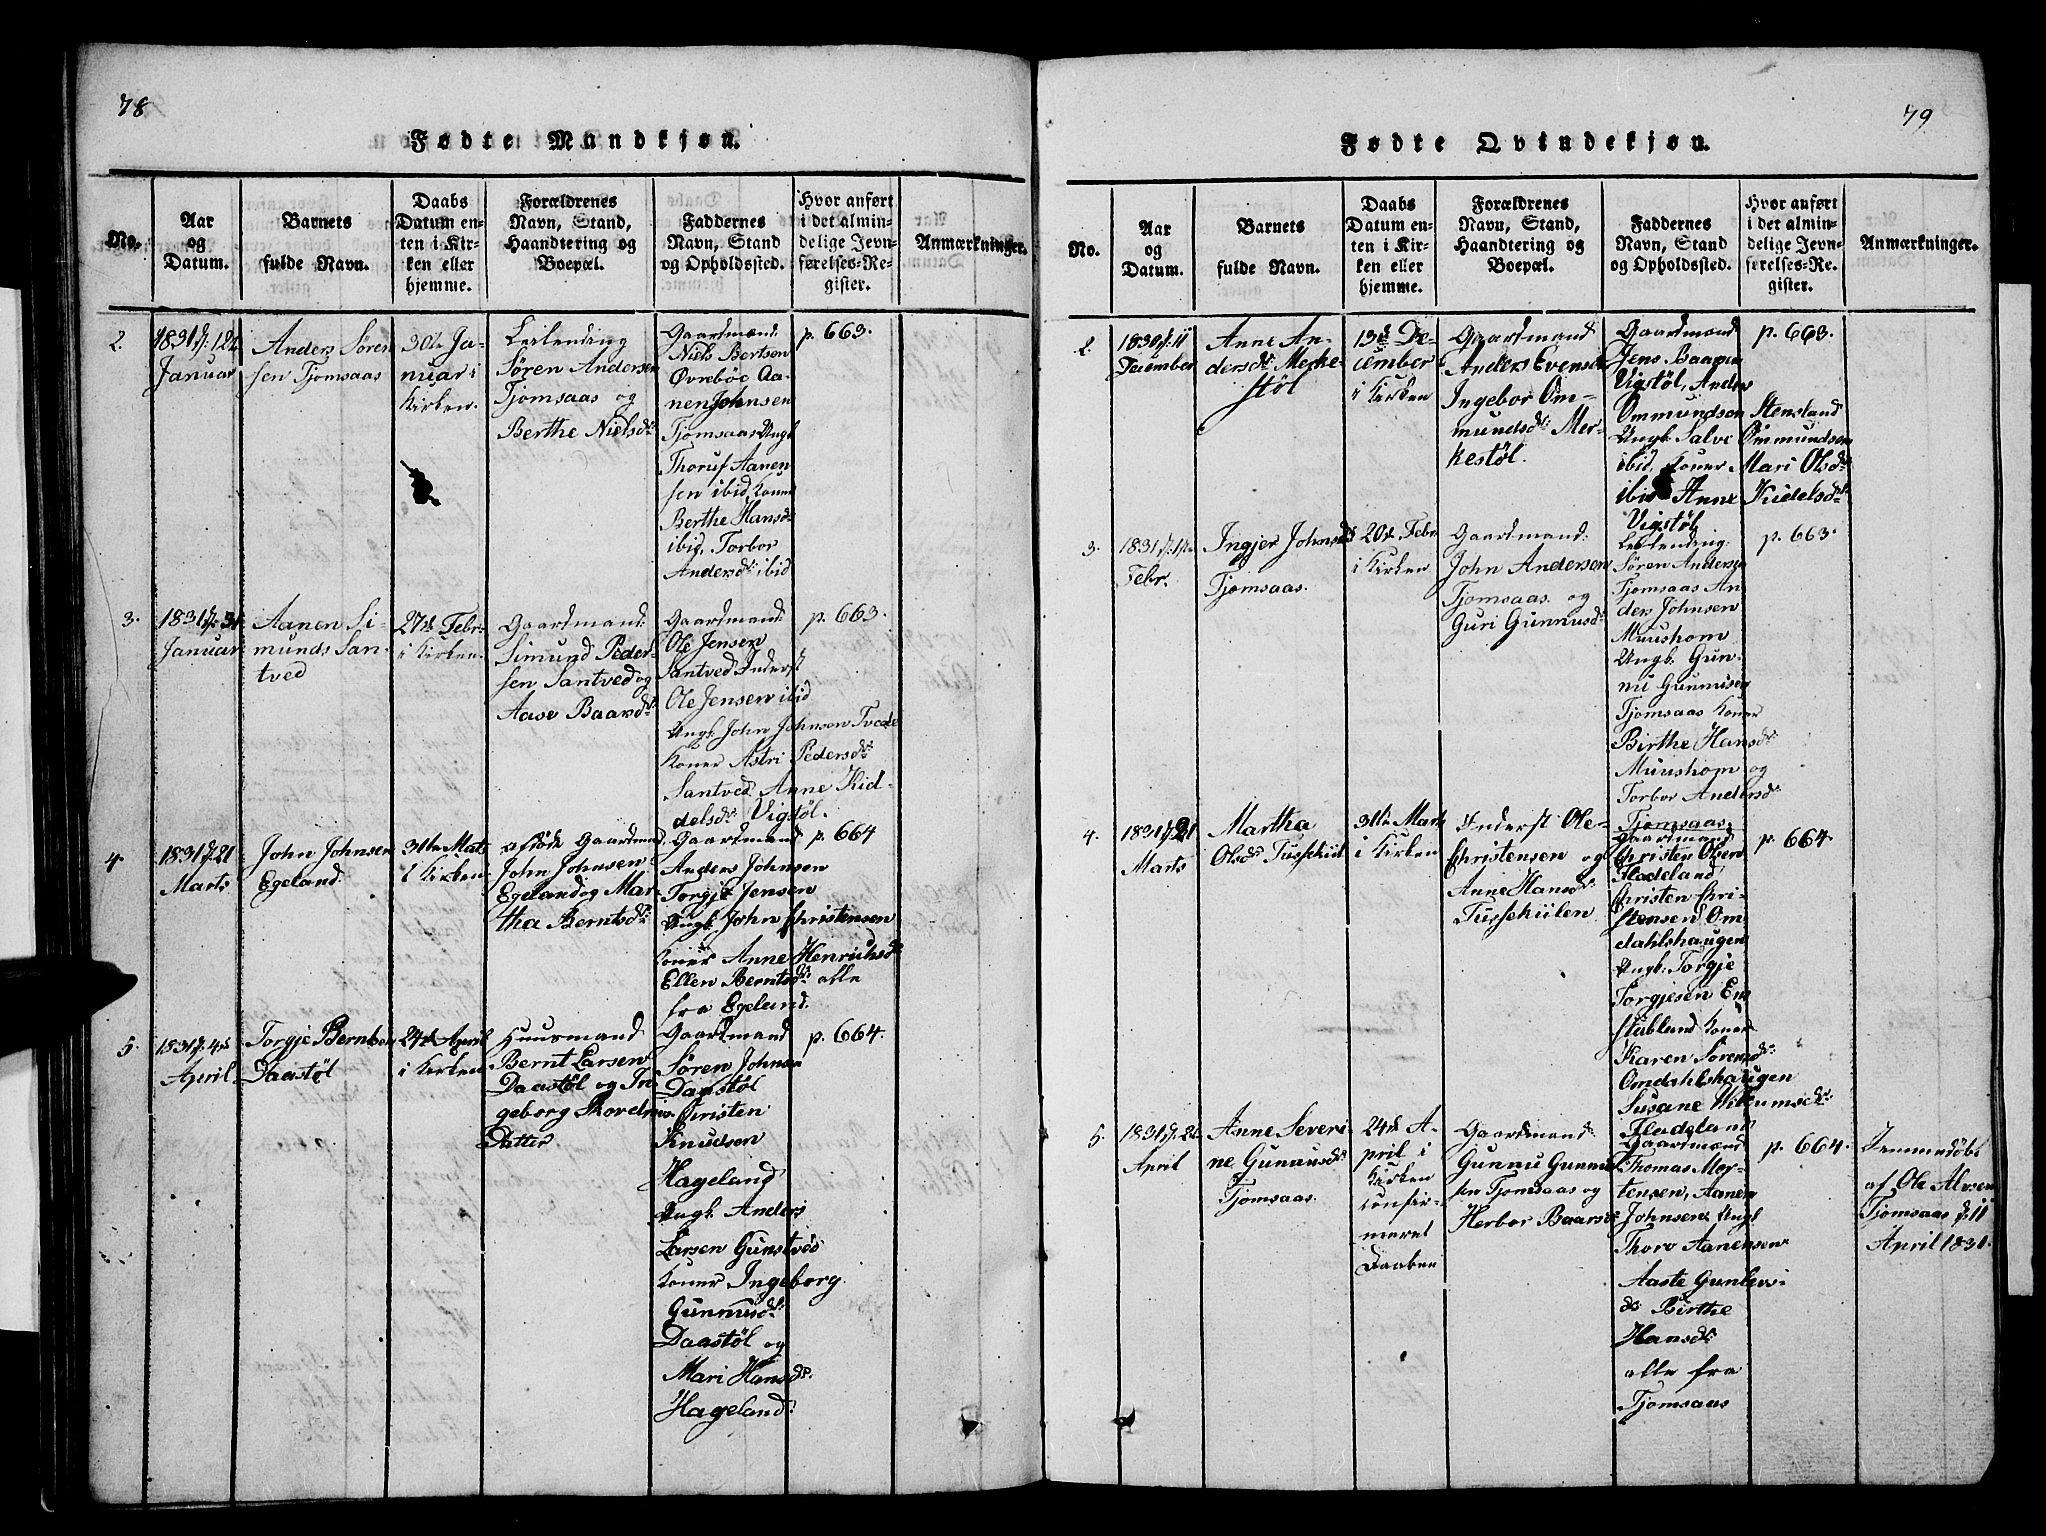 78
Fødte Mandkjøn.
No.
Aar
og
Datum.
Barnets
fulde Navn.
Daabs
Datum en-
ten i Kir-
ken eller
hjemme.
Forældrenes
Navn, Stand,
Haandtering og
Boepæl.
Faddernes
Navn, Stand
og Opholdssted.
Hvor anført
i det almin-
delige Jevn-
førelses-Re-
gister.
Anmærkninger.
2.
1831 d. 12te
Januar
Anders Søren
sen Tjomsaas
30te Ja-
nuar i
Kirken.
Leilending
Søren Andersen
Tjomsaas og
Berthe Nielsdr.
Gaardmænd:
Niels Bertsen
Øvrebøe Aa-
nen Johnsen
Tjomsaas Ungk.
Thoruf Aanen
sen ibid Koner
Berthe Hansdr.
ibid, Torbor
Andersdr. ibid
p. 663.
3.
1831 d. 31
Januar
Aanen Si-
munds San-
tved
27de Febr.
i Kirken.
Gaardmand:
Simund Peder-
sen Santved og
Aase Baarsdr.
Gaardmand:
Ole Jensen
Santved Inderst
Ole Jensen ibid
Ungk. John Johnsen Tvede
Koner Astri Pedersdr.
Santved Anne Kid-
delsdr. Vigstøl.
p. 663.
4.
1831 d. 21
Marts
John Johnsen
Egeland.
31te Mats
i Kirken
afdøde Gaardmand
John Johnsen
Egeland og Mar-
tha Berntsdr.
Gaardmand
Anders Johnsen
Torgje Jensen
Ungk. John Christensen
Koner Anne Henrichsdr.
Ellen Berntsdr. alle
fra Egeland.
p. 664
5.
1831 d. 4de
April
Torgje Berntsen
Daastøl
24de April
i Kirken
Huusmand
Bernt Larsen
Daastøl og In-
geborg Thordnis
Datter
Gaardmand
Søren Johnsen
Daastøl
Christen
Knudsen
Hageland
Ungk. Anders
Larsen Gunstved
Koner Ingeborg
Gunnusdr.
Daastøl og
Mari Hansdr.
Hageland.
p. 664.
79
Fødte Qvindekjøn.
No.
Aar
og
Datum.
Barnets
fulde Navn.
Daabs
Datum en-
ten i Kir-
ken eller
hjemme.
Forældrenes
Navn, Stand,
Haandtering og
Boepæl.
Faddernes
Navn, Stand
og Opholdssted.
Hvor anført
i det almin-
delige Jevn-
førelses-Re-
gister.
Anmærkninger.
2.
1830 d. 11
December
Anne An-
dersdr. Merke-
støl
13d De-
cember
i Kirken
Gaardmand
Anders Evensen
Ingebor Om-
mundsdr. Mer-
kestøl.
Gaardmænd
Jens Baarsen
Vigstøl, Anders
Ommundsen Stensland
Ungk. Salve Ommundsen
ibid, Koner Mari Olsdr.
ibid Anne Kidelsdr.
Vigstøl
p. 663.
3.
1831 d. 1te
Febr.
Ingjer Johnsd
Tjomsaas.
20de Febr.
i Kirken
Gaardmand:
John Andersen
Tjomsaas og
Guri Gunnusdr.
Leilending:
Søren Andersen
Tjomsaas An
ders Johnsen
Muushom
Ungk. Gun-
nu Gunnusen
Tjomsaas Koner
Birthe Hansdr.
Muushom og
Torbor Andersdr.
Tjomsaas.
p. 663.
4.
1831 d. 21
Marts
Martha
Olsdr. Tussekiil
31te Marts
i Kirken
Inderst Ole
Christensen og
Anne Hansdr.
Tussekiilen
Gaardmænd
Christen Olsen
Fladeland
Christen Chri-
stensen Om-
dahlshaugen
Ungk. Torgje
Torgjesen En
stabland Koner
Karen Sørensdr.
Omdahlshaugen
Susane Willumsdr.
Fladeland
p. 664.
5.
1831 d. 2de
April
Anne Severi
ne Gunnusdr.
Tjomsaas.
24de A-
pril i
Kirken
confir-
meret
Daaben
Gaardmand:
Gunnu Gunnu
sen Tjomsaas og
Herbor Baarsdr.
Gaardmænd
Thomas Mor-
tensen, Aanen
Johnsen Ungk.
Thorv Aanensen
Aaste Gunlevs
dr. Birthe
Hansdr.
alle fra
Tjomsaas
p. 664.
Hjemmedøbt
af Ole Alvsen
Tjomsaas d. 11
April 1831.